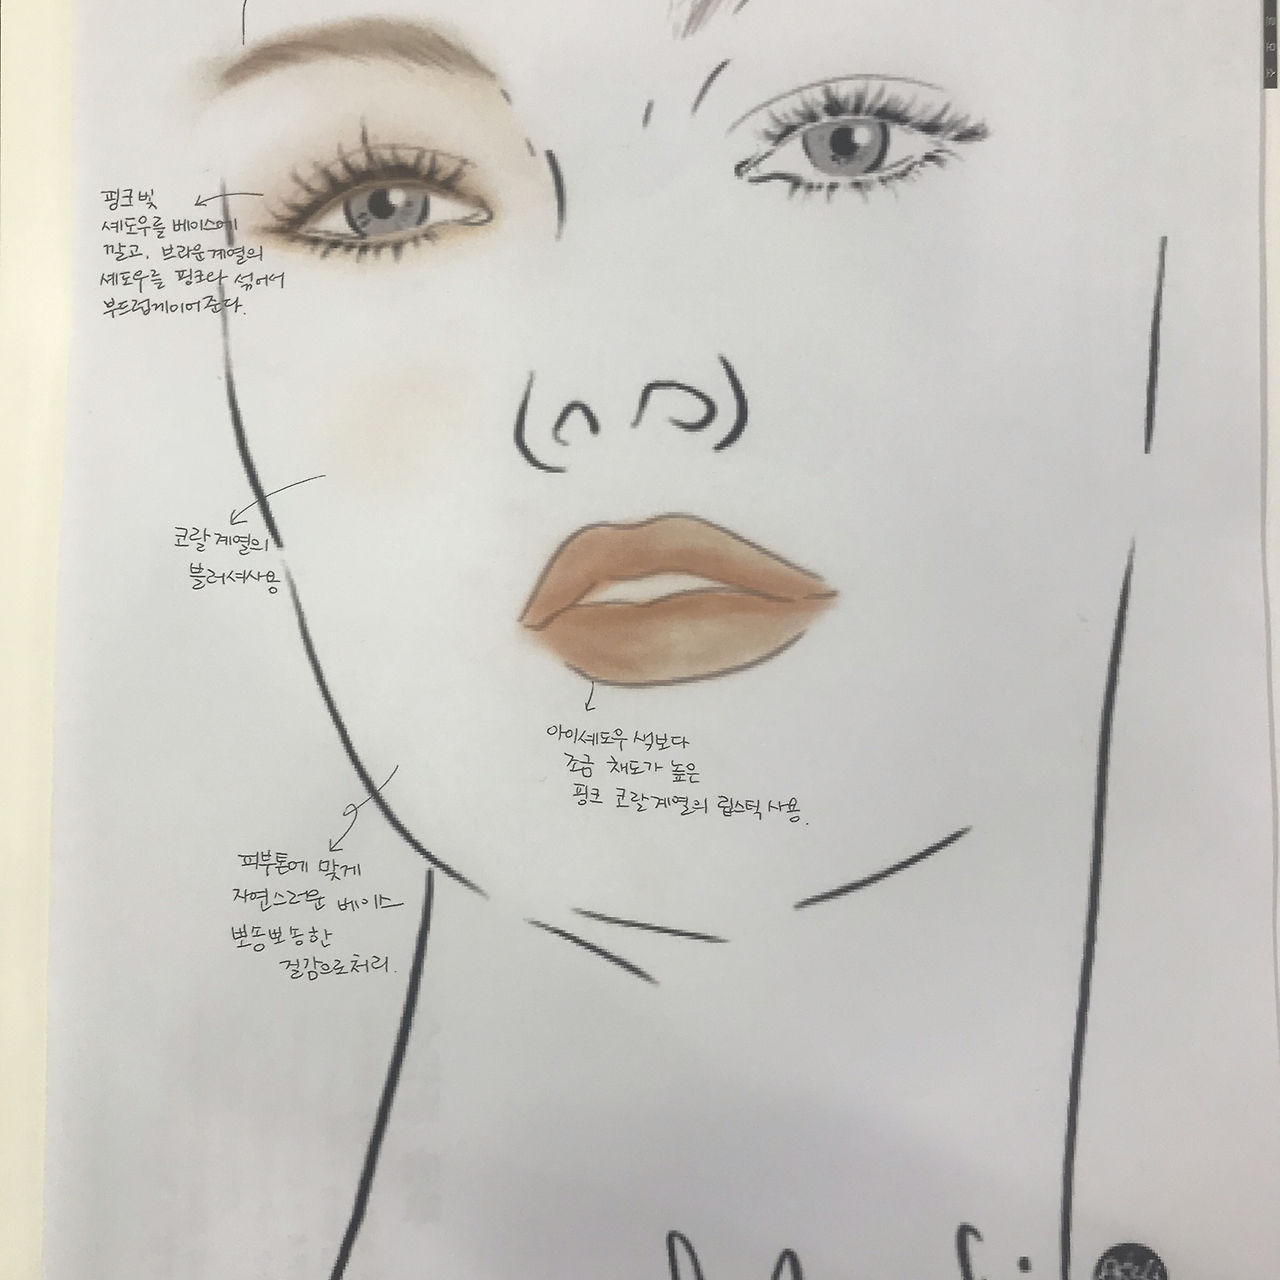 핑크빛
셰도우를 베이스에
깔고, 브라운계열의
셰도우를 핑크와 섞어서
부드럽게이어준다.
코랄계열의
블러셔사용
아이셰도우 색보다
조금 채도가 높은
핑크 코랄계열의 립스틱사용.
피부톤에 맞게
자연스러운 베이스
뽀송뽀송한
질감으로처리.